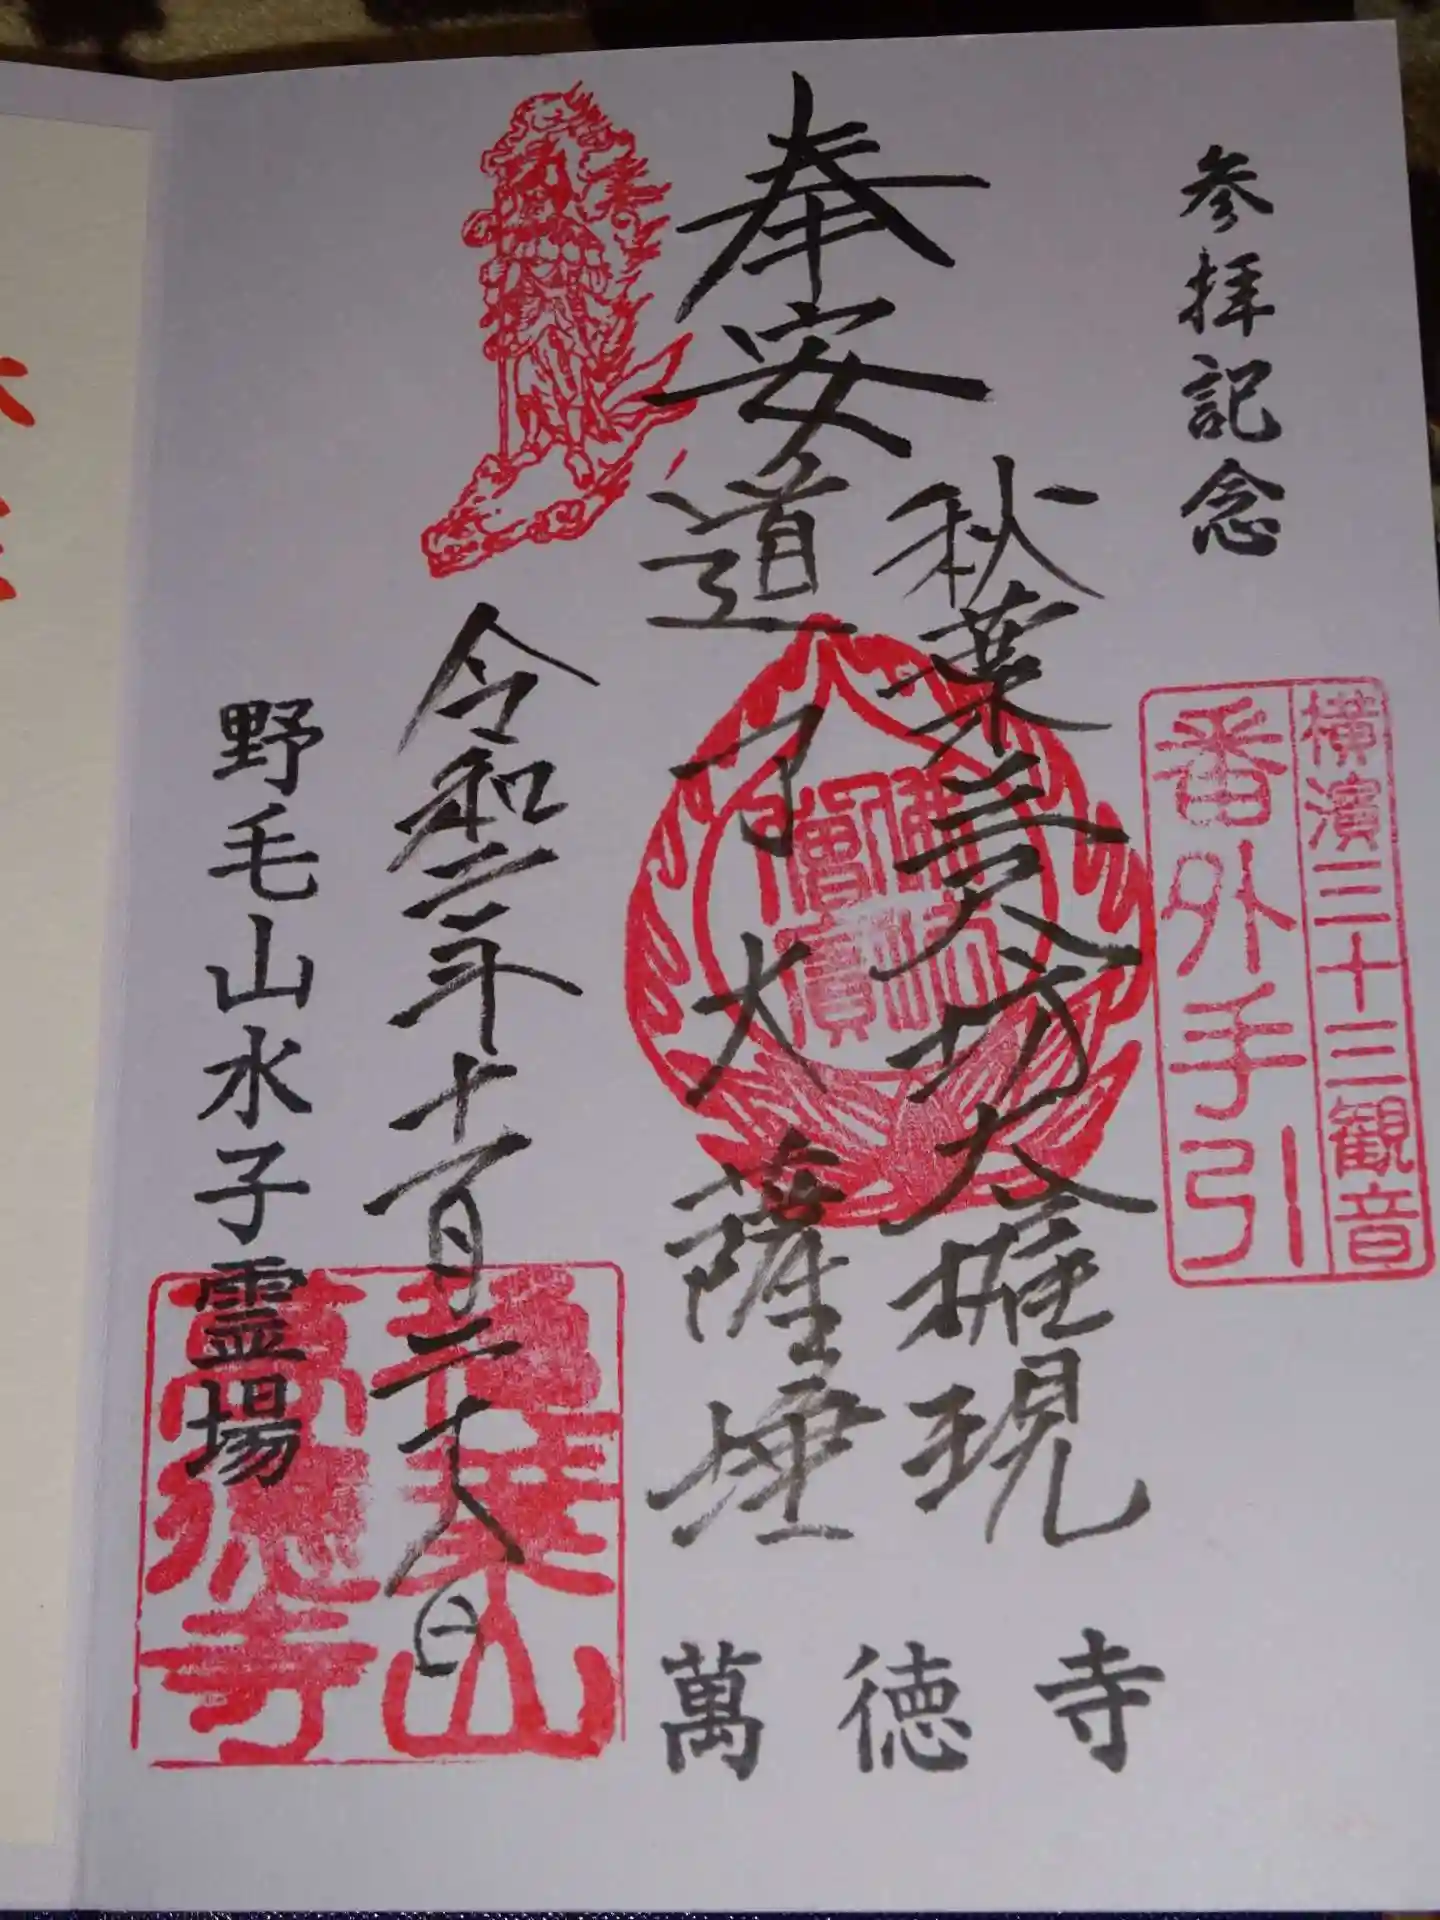 参拝記念
横濱三十三観音
番外手引
奉安
秋葉三尺坊大権現
道了大薩埵
佛法僧寳
令和二年十一月二十八日
野毛山水子霊場
萬徳寺
葉山
萬徳寺